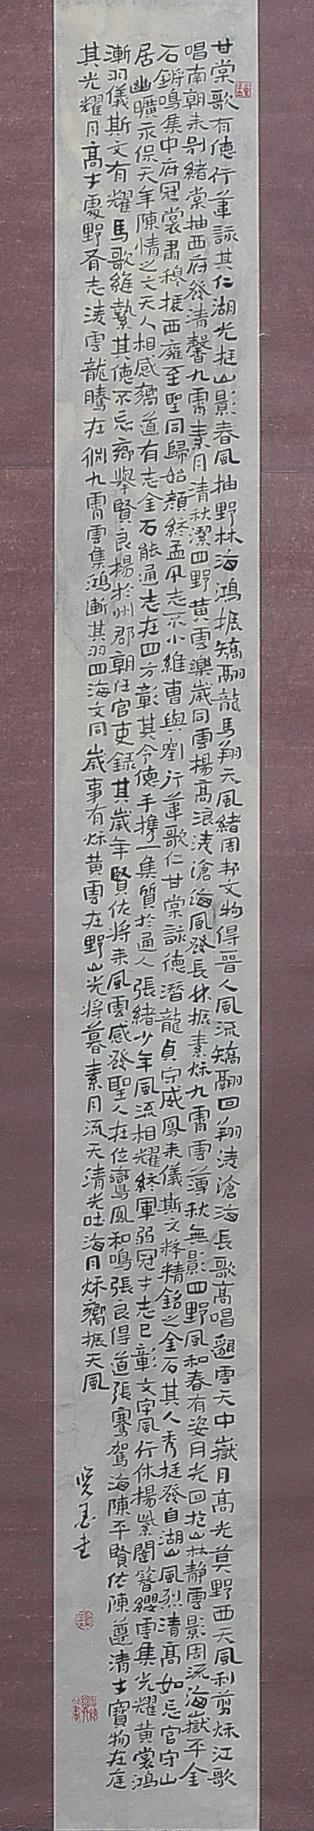 甘棠歌有德行葦詠其仁湖光挺山影春風抽野林海鴻振矯翮龍馬翔天風緒周邦文物得晉人風流矯翮回翔淩滄海長歌高唱翿雲天中嶽月高光莫野西天風利剪秌江歌
唱南朝未別緒棠抽西府發清馨九霄素月清秋潔四野黃雲樂歲同雲揚高浪淩滄海風發長林振素秌九霄雲薄秋無影四野風和春有姿月光回抱山林靜雲影周流海嶽平金
石鏘鳴集中府冠裳肅穆振西廱至聖同歸始顏終孟凡志不小維曹與劉行葦歌仁甘棠詠德潛龍貞守威鳳來儀斯文粹精銘之金石其人秀挺發自湖山風烈清高如忘官守山
居幽曠永保天年陳情之文天人相感嚮道有志金石能通志在四方彰其令德手擕一集質於通人張緒少年風流相耀終軍弱冠才志已彰文字風行休揚紫閣簪纓雲集光耀黃裳鴻
漸羽儀斯文有耀馬歌維縶其德不忘鄉舉賢良揚於州郡朝任官吏錄其歲年賢佐將來風雲感發聖人在位鸞鳳和鳴張良得道張騫駕海陳平賢佐陳遵清才寶物在庭
其光耀月高才處野胥志淩雲龍騰在淵九霄雲集鴻漸其羽四海文同歲事有秌黃雲在野山光將暮素月流天清光吐海月秌嚮振天風